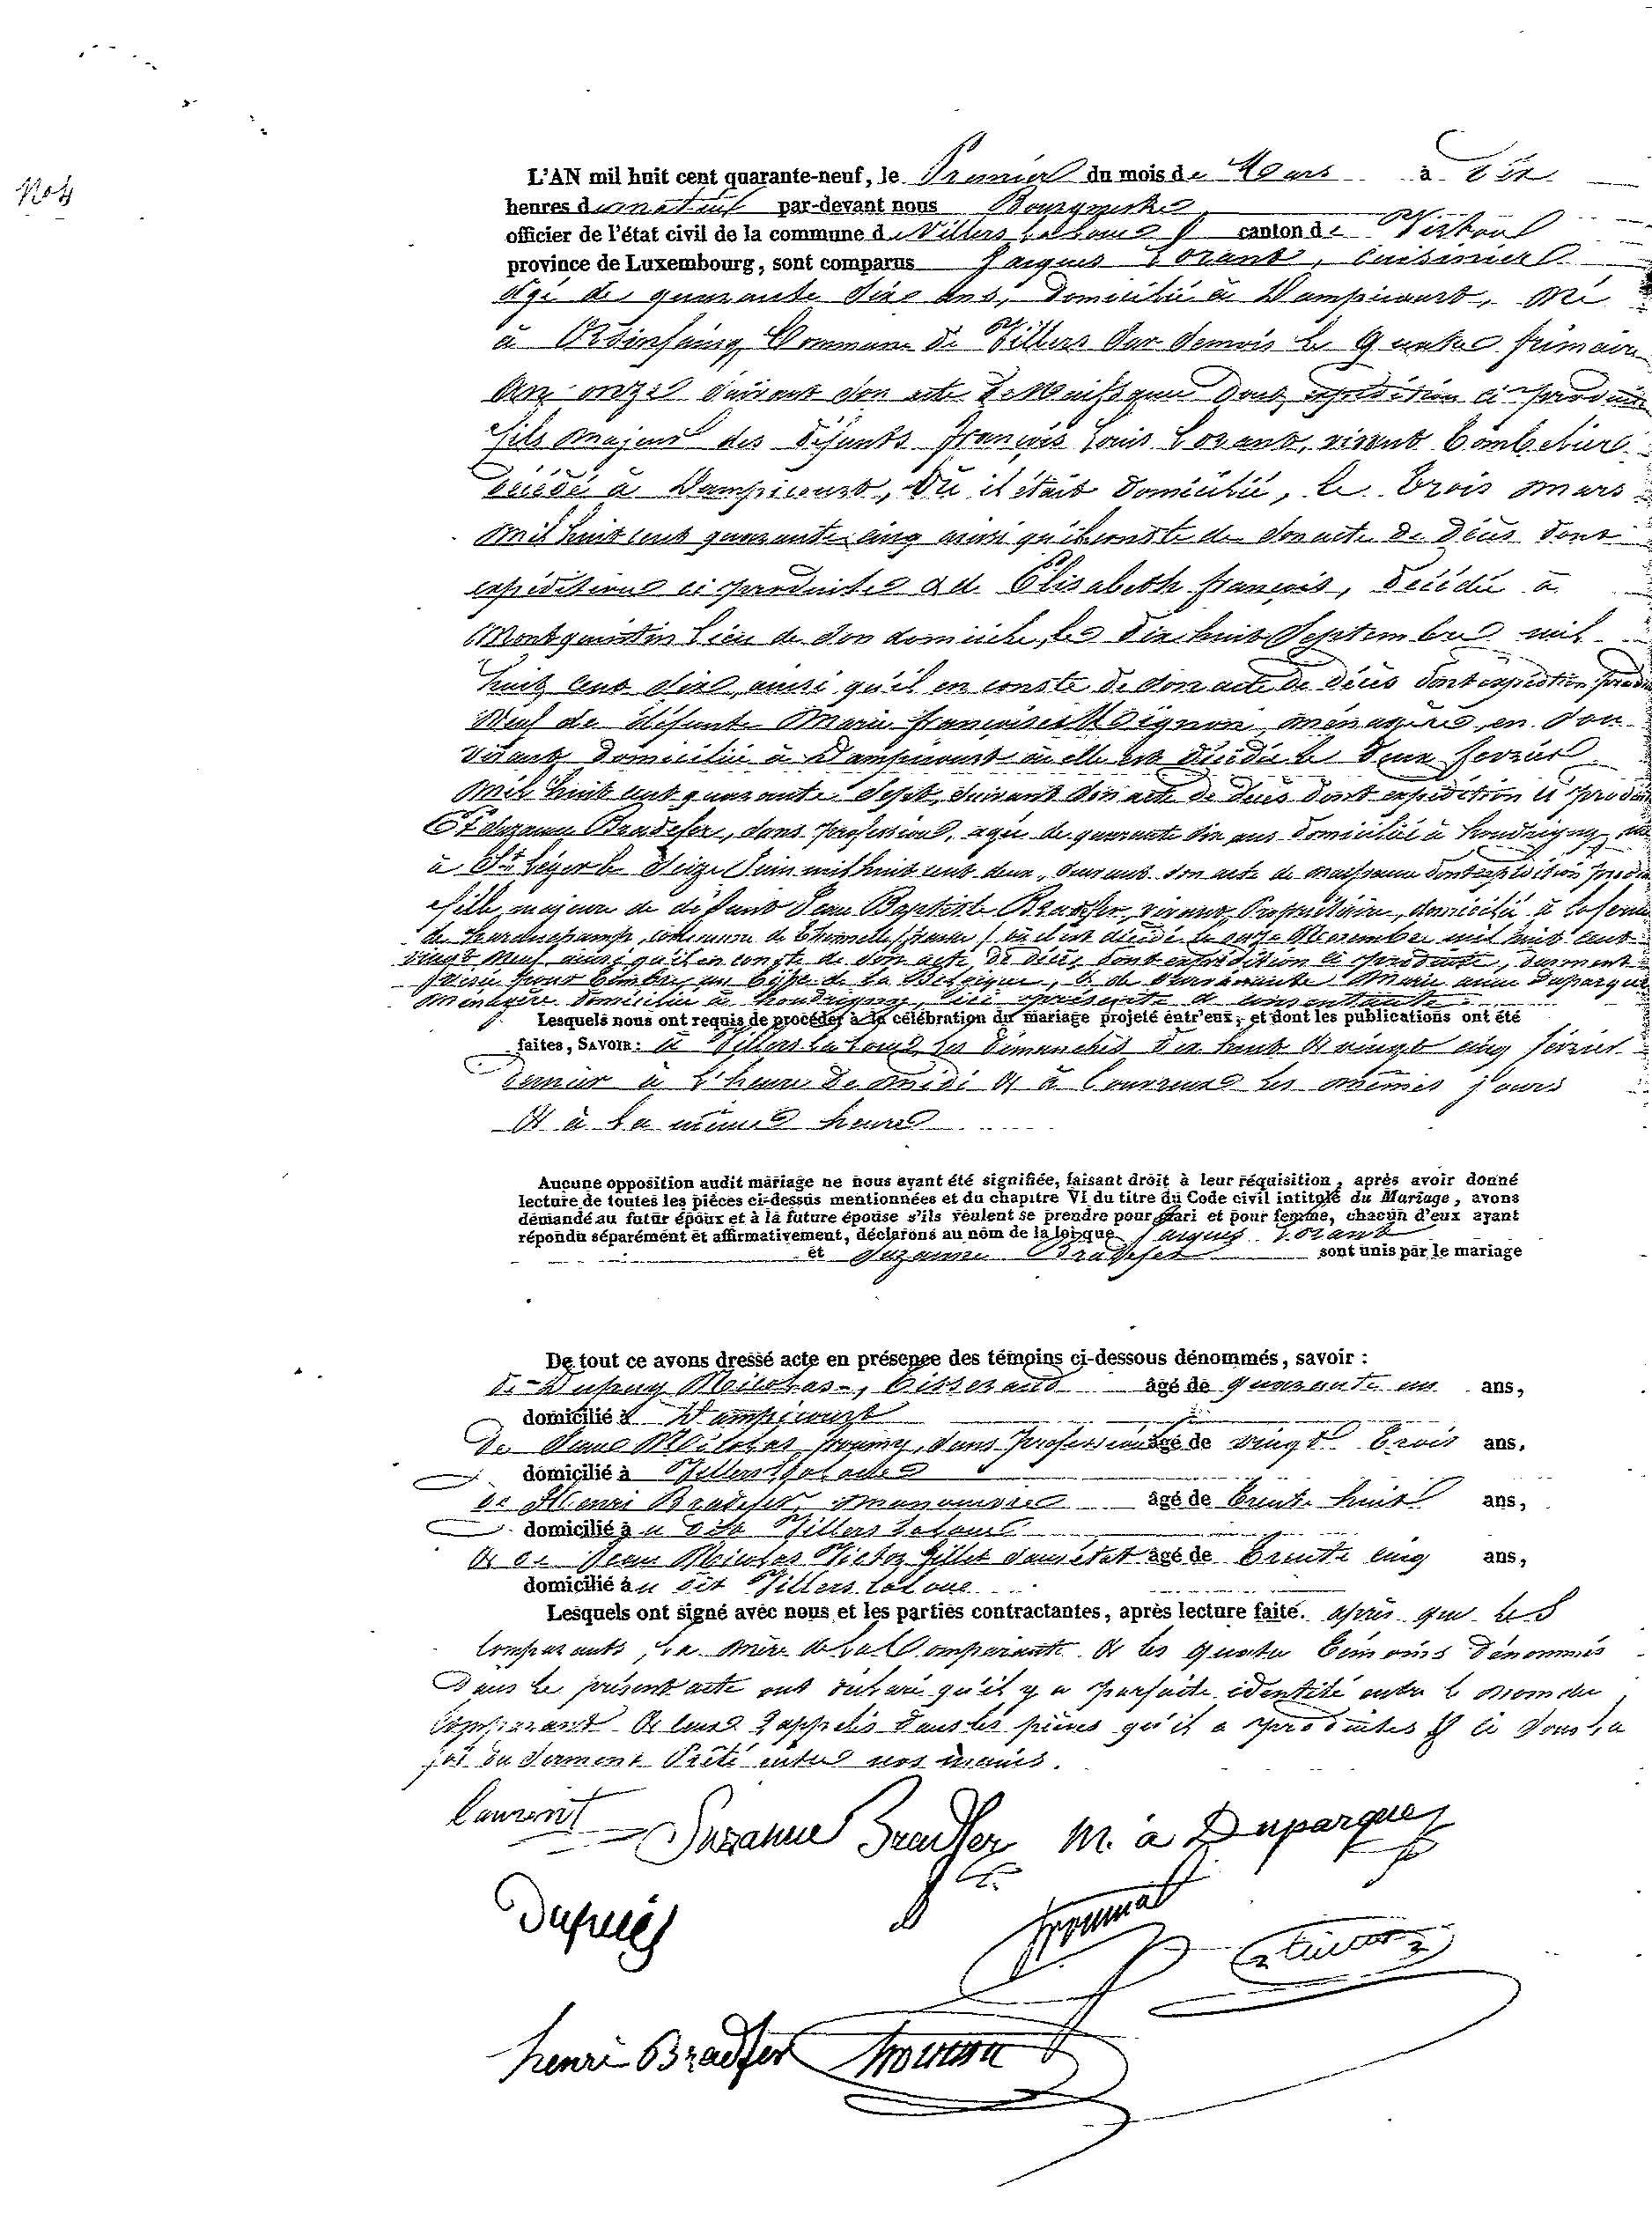 No 4
L'AN mil huit cent quarante-neuf, le Premier du mois de Mars à dix
heures du matin par-devant nous Bourgmestre
officier de l'état civil de la commune de Villers la Loue canton de Virton
province de Luxembourg, sont comparus Jacques Lorant, cuisinier
agé de quarante six ans, domicilié à Dampicourt, né
à commune de Villers sur Semois le quatre frimaire
an onze suivant son acte de naissance dont expédition ci produite
fils majeur des défunts François Louis Lorant, vivant
décédé à Dampicourt, où il était domicilié, le trois mars
mil huit cent quarante cinq ainsi qu'il conste de son acte de décès dont
expédition ci produite & de Elisabeth François, décédée à
Montquintin lieu de son domicile, le dix huit Septembre mil
huit cent dix, ainsi qu'il en conste de son acte de décès dont expédition produite
veuf de défunte Marie Françoise Mignon, ménagère, en son
vivant domiciliée à Dampicourt où elle est décédée le deux fevrier
mil huit cent quarante sept, suivant son acte de décès dont expédition ci produite
Et Suzanne Bradfer, sans profession, agée de quarante six ans domiciliée à Houdrigny, née
à St Léger le seize Juin mil huit cent deux, suivant son acte de naissance dont expédition produite
fille majeure de défunt Jean Baptiste Bradfer, vivant Propriétaire, domicilié à
de commune de où il est décédé le onze Novembre mil huit cent
vingt neuf ainsi qu'il en conste de son acte de décès dont expédition ci produite, dument
visée pour timbre au de la Belgique, & de Marie anne Duparque
ménagère domiciliée à Houdrigny, ici présente & consentante
Lesquels nous ont requis de procéder à la célébration du mariage projeté entr'eux, et dont les publications ont été
faites, SAVOIR: à Villers la Loue les dimanches dix huit & vingt cinq février
dernier à l'heure de midi & à les mêmes jours
& à la même heure
Aucune opposition audit mariage ne nous ayant été signifiée, faisant droit à leur réquisition, après avoir donné
lecture de toutes les pièces ci-dessus mentionnées et du chapitre VI du titre du Code civil intitulé du Mariage, avons
demandé au futur époux et à la future épouse s'ils veulent se prendre pour mari et pour femme, chacun d'eux ayant
répondu séparément et affirmativement, déclarons au nom de la loi que Jacques Lorant
et Suzanne Bradfer sont unis par le mariage
De tout ce avons dressé acte en présence des témoins ci-dessous dénommés, savoir:
de Dupuy Nicolas, tisserand âgé de quarante un ans,
domicilié à Dampicourt
De Jean Nicolas sans profession âgé de vingt trois ans.
domicilié à Villers la Loue
de Henri Bradfer, âgé de trente huit ans,
domicilié à u dit Villers la Loue
& de Jean Nicolas Victor Gillet sans état âgé de trente cinq ans,
domicilié à u dit Villers la Loue
Lesquels ont signé avec nous et les parties contractantes, après lecture faite. après que les
comparants, la mère de la comparante & les quatre témoins dénommés
dans le présent acte ont déclaré qu'il y a parfaite identité entre le nom du
comparant & ceux rappelés dans les pièces qu'il a produites & ce sous la
foi du serment Prêté entre nos mains.
Laurent Suzanne Bradfer M. a Duparque
Dupuis
henri Bradfer